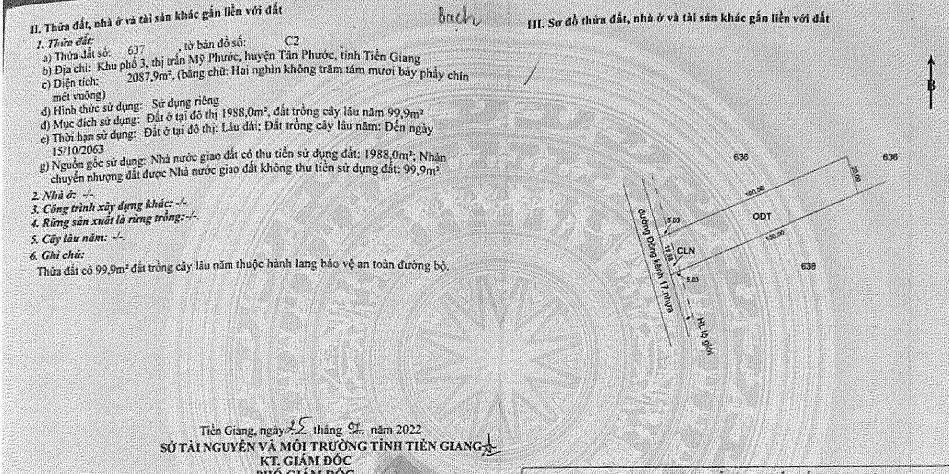 II. Thửa đất, nhà ở và tài sản khác gắn liền với đất
1. Thửa đất:
a) Thửa đất số: 637 , tờ bản đồ số: C2
b) Địa chỉ: Khu phố 3, thị trấn Mỹ Phước, huyện Tân Phước, tỉnh Tiền Giang
c) Diện tích: 2087,9m², (bằng chữ: Hai nghìn không trăm tám mươi bảy phẩy chín
mét vuông)
d) Hình thức sử dụng: Sử dụng riêng
đ) Mục đích sử dụng: Đất ở tại đô thị 1988,0m², đất trồng cây lâu năm 99,9m²
e) Thời hạn sử dụng: Đất ở tại đô thị: Lâu dài; Đất trồng cây lâu năm: Đến ngày
15/10/2063
g) Nguồn gốc sử dụng: Nhà nước giao đất có thu tiền sử dụng đất: 1988,0m²; Nhận
chuyển nhượng đất được Nhà nước giao đất không thu tiền sử dụng đất: 99,9m²
2. Nhà ở: -/-
3. Công trình xây dựng khác: -/-
4. Rừng sản xuất là rừng trồng:-/-
5. Cây lâu năm: -/-
6. Ghi chú:
Thửa đất có 99,9m² đất trồng cây lâu năm thuộc hành lang bảo vệ an toàn đường bộ.
Tiền Giang, ngày 25 tháng năm 2022
SỞ TÀI NGUYÊN VÀ MÔI TRƯỜNG TỈNH TIỀN GIANG
KT. GIÁM ĐỐC
PHÓ GIÁM ĐỐC
Bach
III. Sơ đồ thửa đất, nhà ở và tài sản khác gắn liền với đất
B
636
636
100,00
20,00
ODT
5.03
CLN
100,00
636
5.03
đường Đông kênh 17 nhựa
HL lộ giới